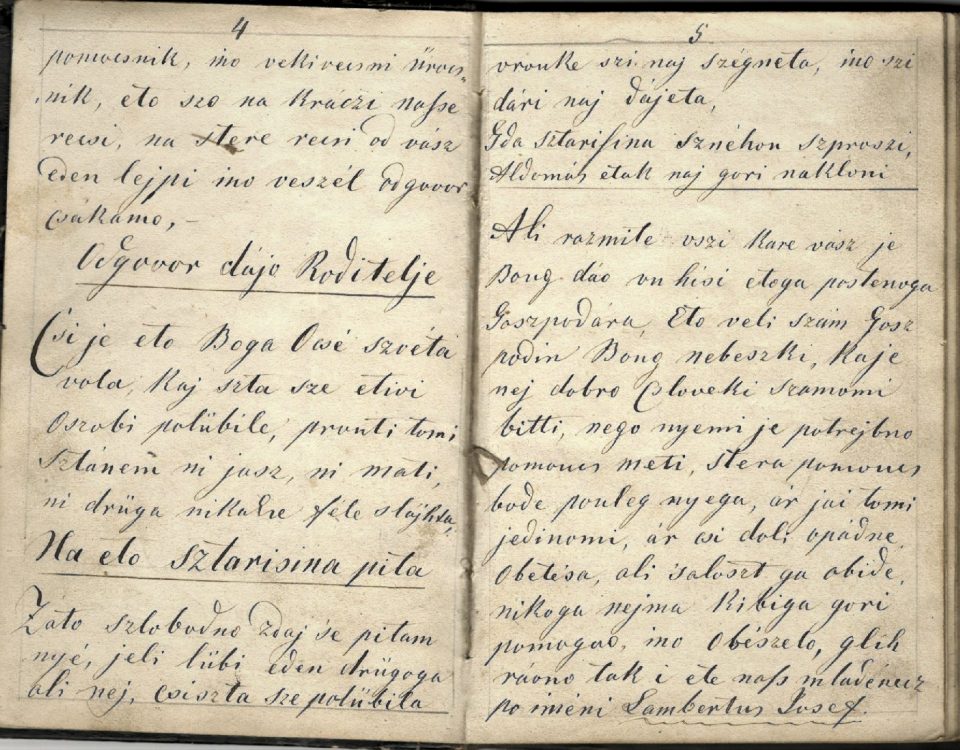 4
pomocsnik, ino vekivecsni Ürocs=
nik, eto szo na kráczi nasse
recsi, na stere recsi od vász
eden lejpi ino veszél odgovor
csakamo, –
Odgovor dájo Roditelje
Csi je eto Boga Ocsé szvéta
vola, kaj szta sze etivi
Oszobi polübile, prouti tomi
Sztánem ni jasz, ni mati,
ni drüga nikakse féle slajhta,
Na eto sztarisina pita
Zato szlobodno zdaj se pitam
nyé, jeli lübi eden drügoga
ali nej, csiszta sze polübila
5
vrouke szi naj szégneta, ino szi
dári naj dájeta,
Gda sztarisina sznéhon szproszi,
Aldomás etak naj gori nákloni
Ali razmite vszi kare vász je
Boug dáo vu hisi etoga postenoga
Goszpodára, Eto veli szám Gosz
podin Boug nebeszki, kaje
nej dobro Csloveki szamomi
bitti, nego nyemi je potrejbno
pomoucs meti, stera pomoucs
bode pouleg nyega, ár jai tomi
jedinomi, ár csi doli opádne,
Obetésa, ali saloszt ga obide,
nikoga nejma ki biga gori
pomogao, ino Obészeto, glih
rávno tak i ete nass mladénecz
po iméni Lambertus Josef.